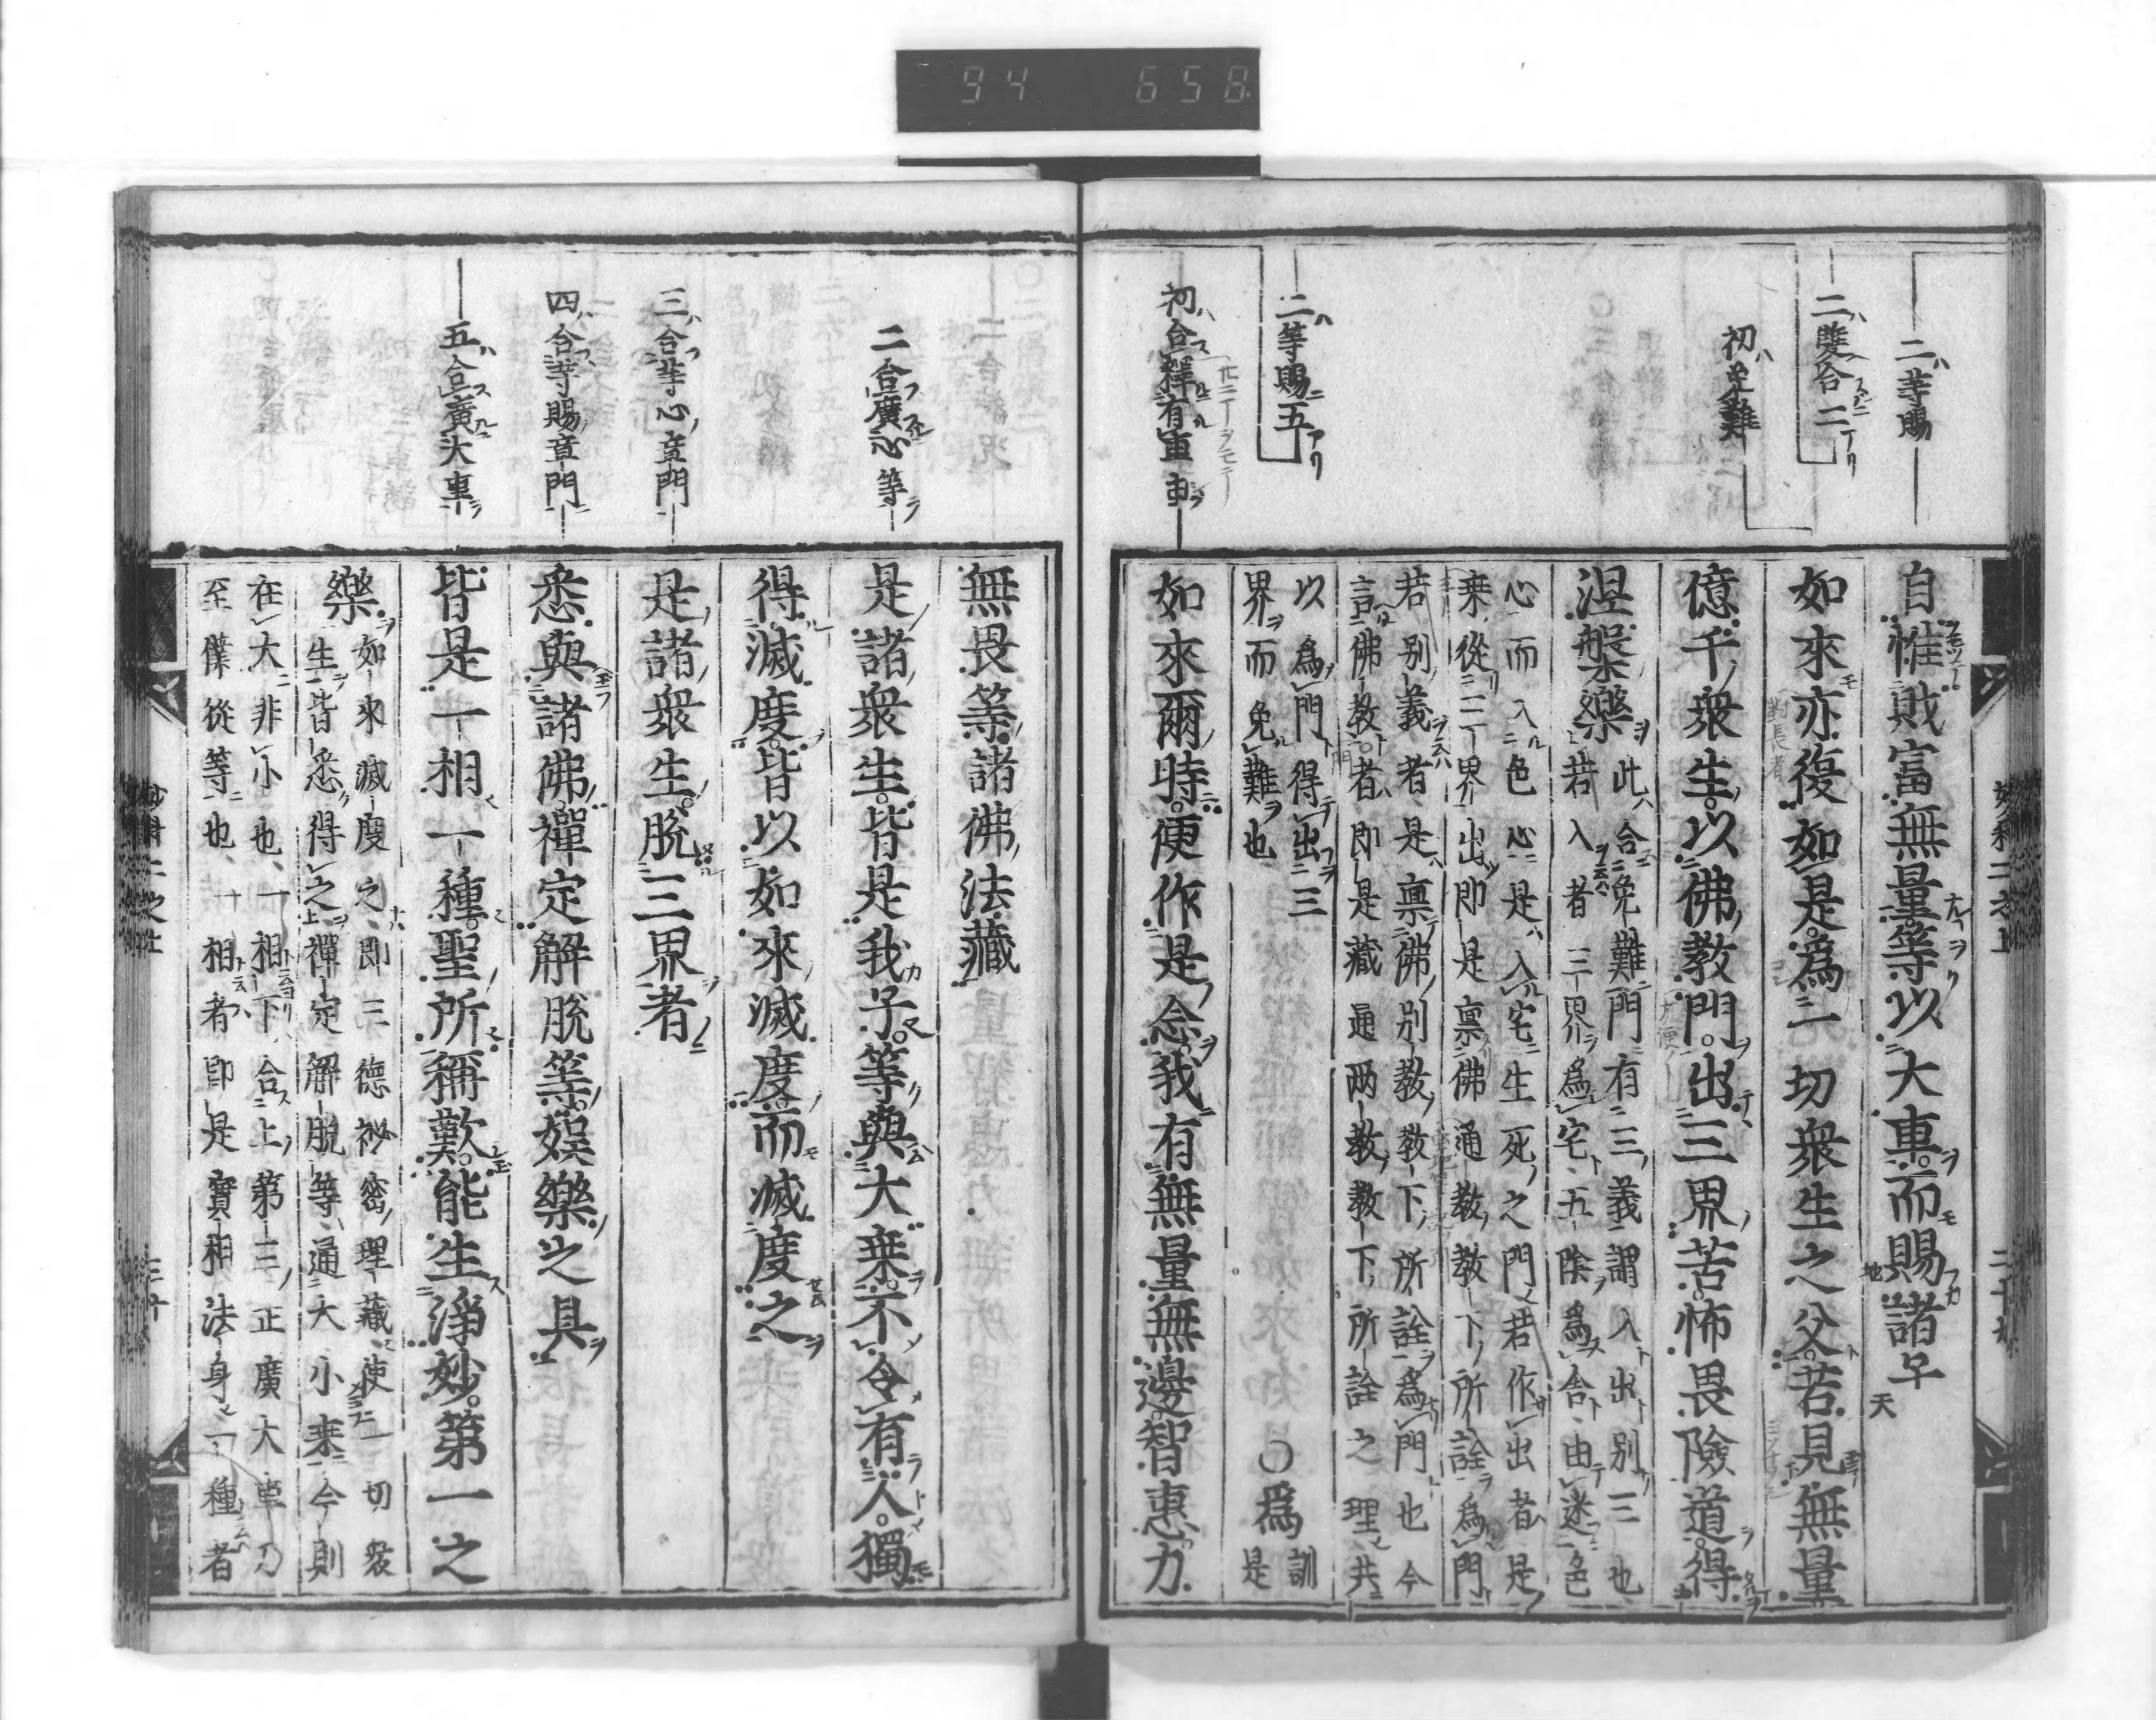 94 658
二等賜
二雙合二
初免難
二等賜五
初合釋有車
自惟財富無量等以大車而賜諸子
如來亦復如是爲一切衆生之父若見無量
億千衆生以佛教門出三界苦怖畏險道得
涅槃樂
此合免難門有三義謂入出別三也
若入者三界爲宅五陰爲舍由迷色
心而入色心是入宅生死之門若作出者是
乗從三界出即是禀佛通教教下所詮爲門
若別義者是禀佛別教教下所詮爲門也今
言佛教者即是藏通兩教教下所詮之理共
以爲門得出三
界而免難也
〇爲
訓
是
如來爾時便作是念我有無量無邊智惠力
二合廣心等
三合等心章門
四合等賜章門
五合廣大車
無畏等諸佛法藏
是諸衆生皆是我子等與大乗不令有人獨
得滅度皆以如來滅度而滅度之
是諸衆生脱三界者
悉與諸佛禪定解脱等娯樂之具
皆是一相一種聖所稱歎能生淨妙第一之
樂
如來滅度之即三德祕密理藏使一切衆
生皆悉得之禪定解脱等通大小乗今則
在大非小也一相下合上第三正廣大車乃
至僕從等也一相者即是實相法身一種者